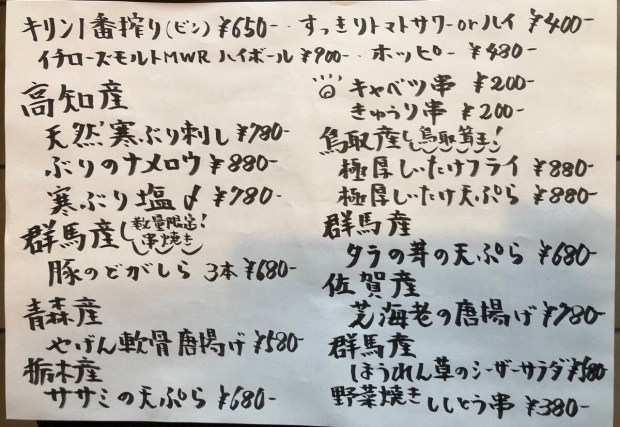 キリン一番搾り(ビン) ¥650- すっきりトマトサワーorハイ ¥400-
イチローズモルトMWR ハイボール ¥900- ホッピー ¥480-
高知産
天然寒ぶり刺し ¥780-
ぶりのナメロウ ¥880-
寒ぶり塩〆 ¥780-
群馬産 数量限定! 串焼き
豚のどがしら 3本 ¥680-
青森産
やげん軟骨唐揚げ ¥580-
栃木産
ササミの天ぷら ¥680-
キャベツ串 ¥200-
きゅうり串 ¥200-
鳥取産 鳥取茸王!
極厚しいたけフライ ¥880-
極厚しいたけ天ぷら ¥880-
群馬産
タラの芽の天ぷら ¥680-
佐賀産
芝海老の唐揚げ ¥780-
群馬産
ほうれん草のシーザーサラダ ¥580
野菜焼き ししとう串 ¥380-